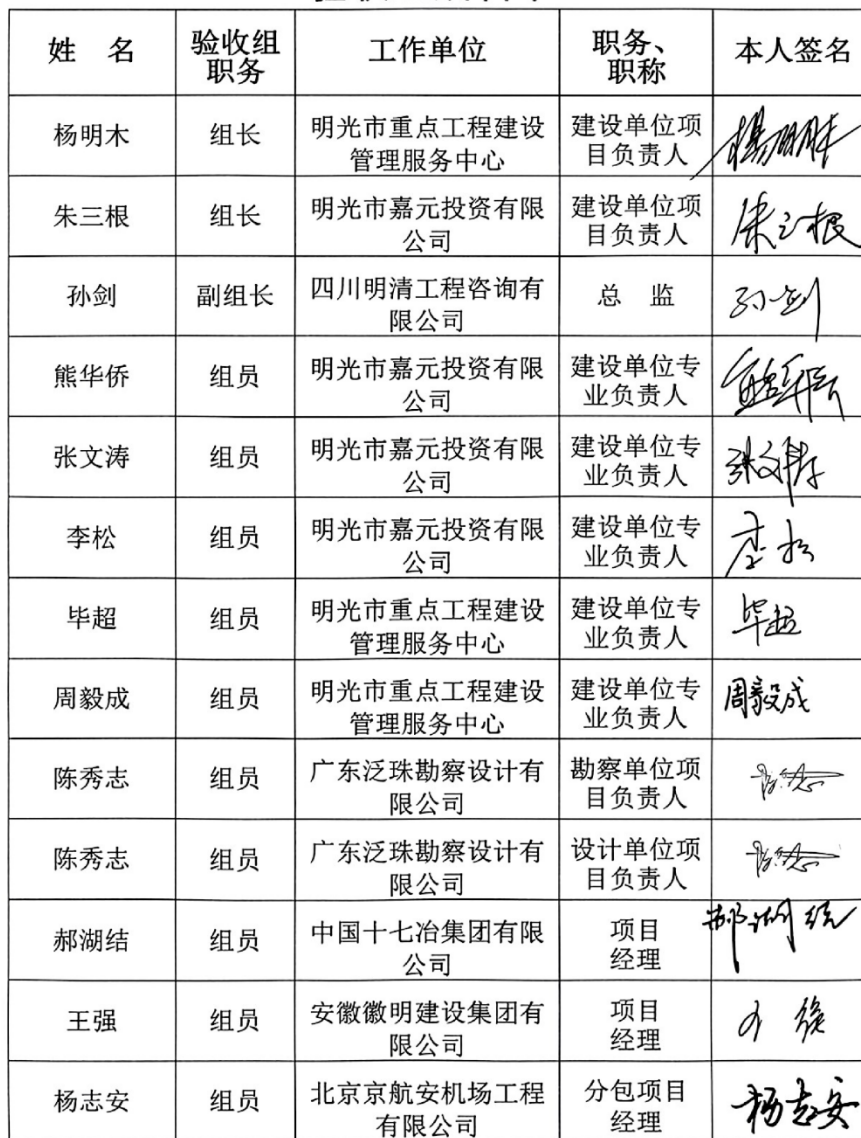 姓 名 验收组职务 工作单位 职务、职称 本人签名
杨明木 组长 明光市重点工程建设管理服务中心 建设单位项目负责人
朱三根 组长 明光市嘉元投资有限公司 建设单位项目负责人 朱三根
孙剑 副组长 四川明清工程咨询有限公司 总 监 孙剑
熊华侨 组员 明光市嘉元投资有限公司 建设单位专业负责人 熊华侨
张文涛 组员 明光市嘉元投资有限公司 建设单位专业负责人 张文涛
李松 组员 明光市嘉元投资有限公司 建设单位专业负责人 李松
毕超 组员 明光市重点工程建设管理服务中心 建设单位专业负责人 毕超
周毅成 组员 明光市重点工程建设管理服务中心 建设单位专业负责人 周毅成
陈秀志 组员 广东泛珠勘察设计有限公司 勘察单位项目负责人
陈秀志 组员 广东泛珠勘察设计有限公司 设计单位项目负责人
郝湖结 组员 中国十七冶集团有限公司 项目经理 郝湖结
王强 组员 安徽徽明建设集团有限公司 项目经理 王强
杨志安 组员 北京京航安机场工程有限公司 分包项目经理 杨志安